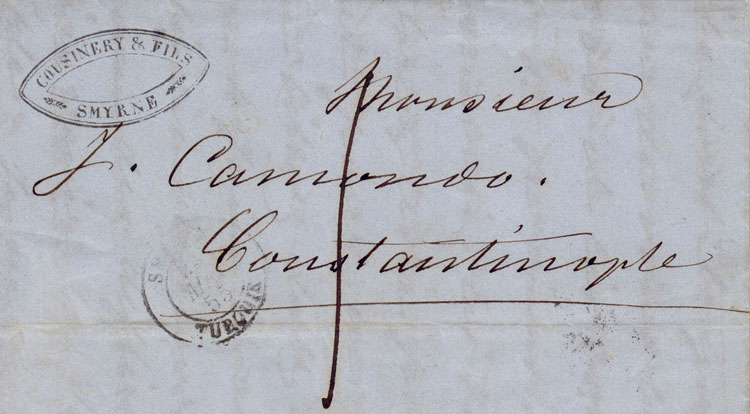 COUSINERY & FILS
SMYRNE
Monsieur
J. Camondo.
Constantinople
TURQUIE